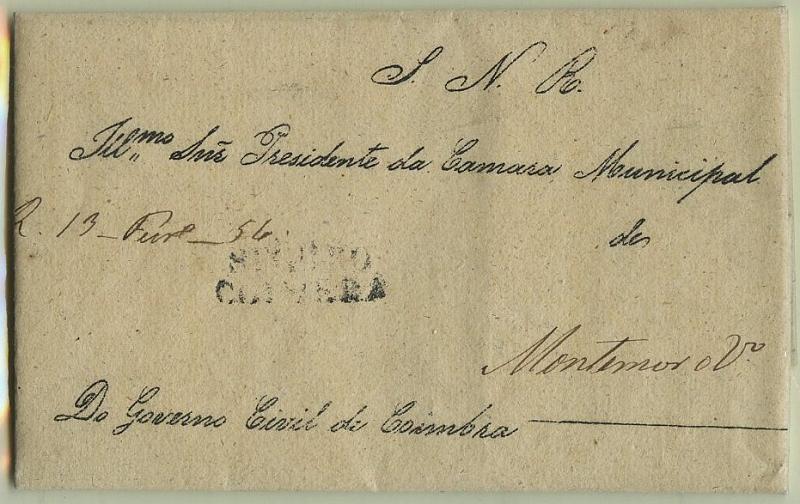 S. N. R.
Ill.mo Snr. Presidente da Camara Municipal
R. 13 _ _ 56
de
SEGURO
COIMBRA
Montemor o Vo
Do Governo Civil de Coimbra